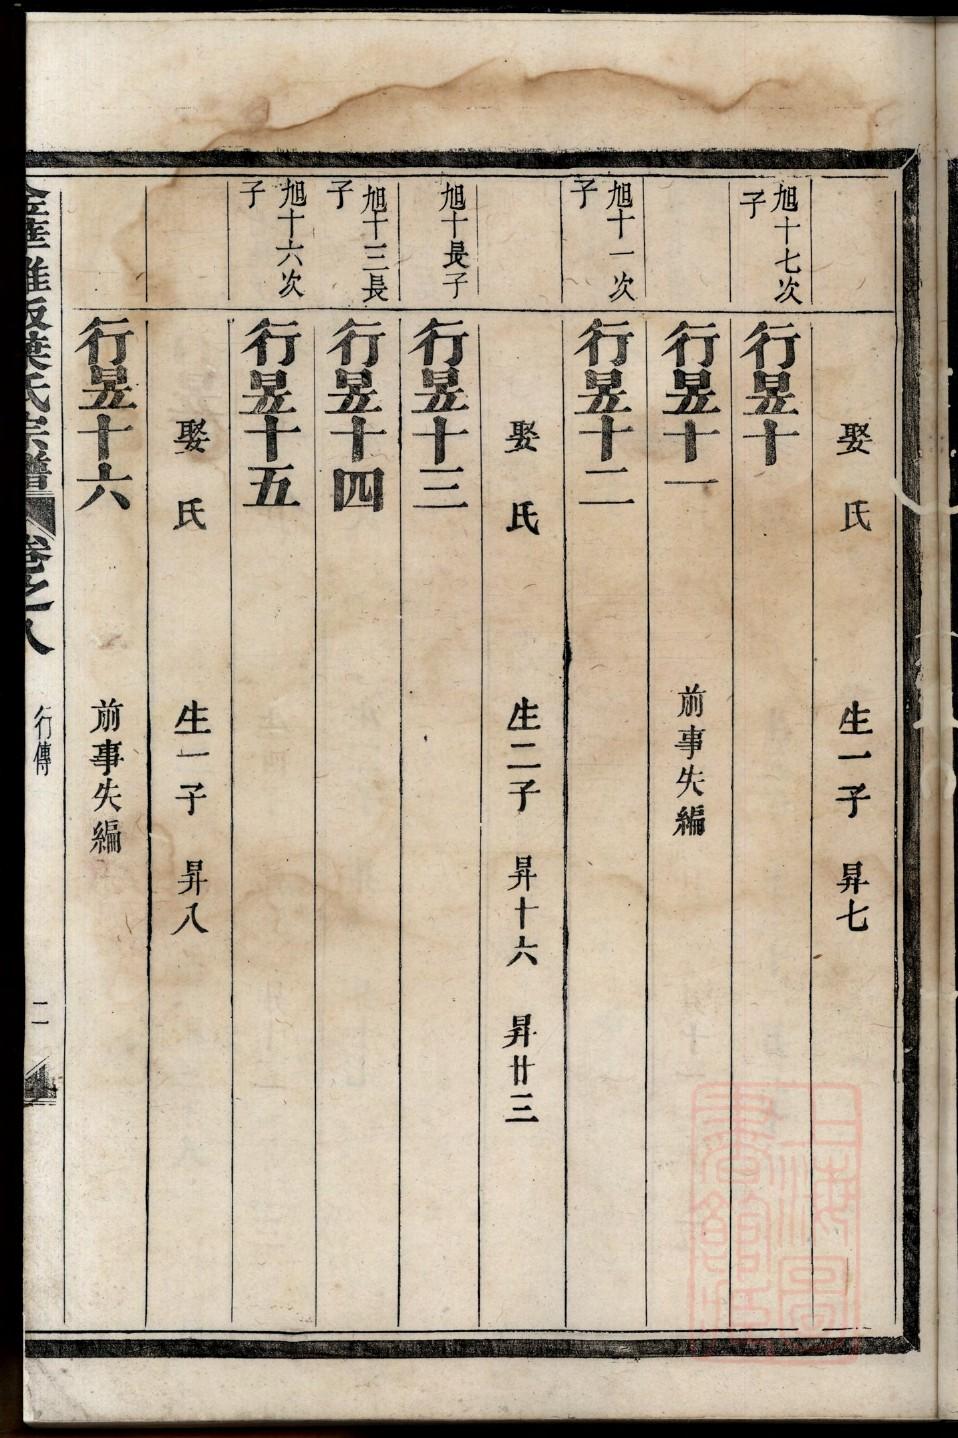 娶氏 生一子 昇七
旭十七次子
行昱十
行昱十一 前事失編
旭十一次子
行昱十二
娶氏 生二子 昇十六 昇廿三
旭十長子
行昱十三
旭十三長子
行昱十四
旭十六次子
行昱十五
娶氏 生一子 昇八
行昱十六 前事失編
葉氏宗譜 卷之八 行傳 二
上海圖書館藏